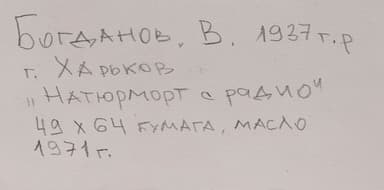 Богданов. В. 1937г.р
г. Харьков
„Натюрморт с радио"
49 x 64 бумага, масло
1971г.